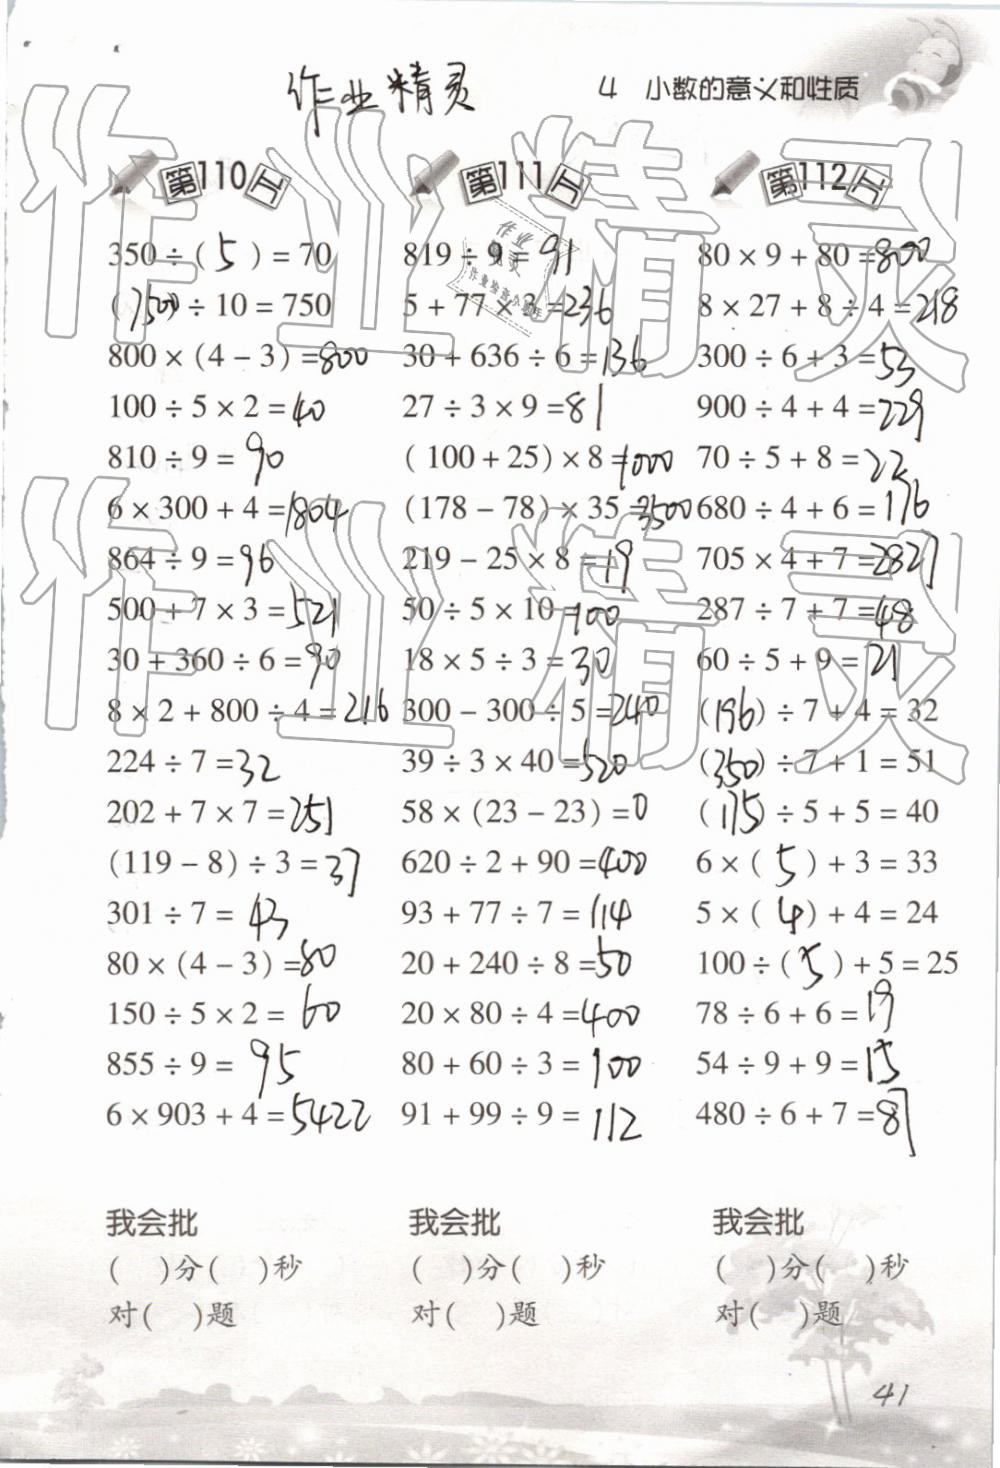 作业精灵
4 小数的意义和性质
第110工
350÷(5)=70
(7500)÷10=750
800×(4-3)=800
100÷5×2=40
810÷9=90
6×300+4=1804
864÷9=96
500+7×3=521
30+360÷6=90
8×2+800÷4=216
224÷7=32
202+7×7=251
(119-8)÷3=37
301÷7=43
80×(4-3)=80
150÷5×2=60
855÷9=95
6×903+4=5422
我会批
( )分( )秒
对( )题
第111工
819÷9=91
5+77×3=236
30+636÷6=136
27÷3×9=81
(100+25)×8=1000
(178-78)×35=3500
219-25×8=19
50÷5×10=100
18×5÷3=30
300-300÷5=240
39÷3×40=520
58×(23-23)=0
620÷2+90=400
93+77÷7=114
20+240÷8=50
20×80÷4=400
80+60÷3=100
91+99÷9=112
我会批
( )分( )秒
对( )题
第112工
80×9+80=800
8×27+8÷4=218
300÷6+3=53
900÷4+4=229
70÷5+8=22
680÷4+6=176
705×4+7=2827
287÷7+7=48
60÷5+9=21
(196)÷7+4=32
(350)÷7+1=51
(175)÷5+5=40
6×(5)+3=33
5×(4)+4=24
100÷(5)+5=25
78÷6+6=19
54÷9+9=15
480÷6+7=87
我会批
( )分( )秒
对( )题
41
作业精灵
作业精灵